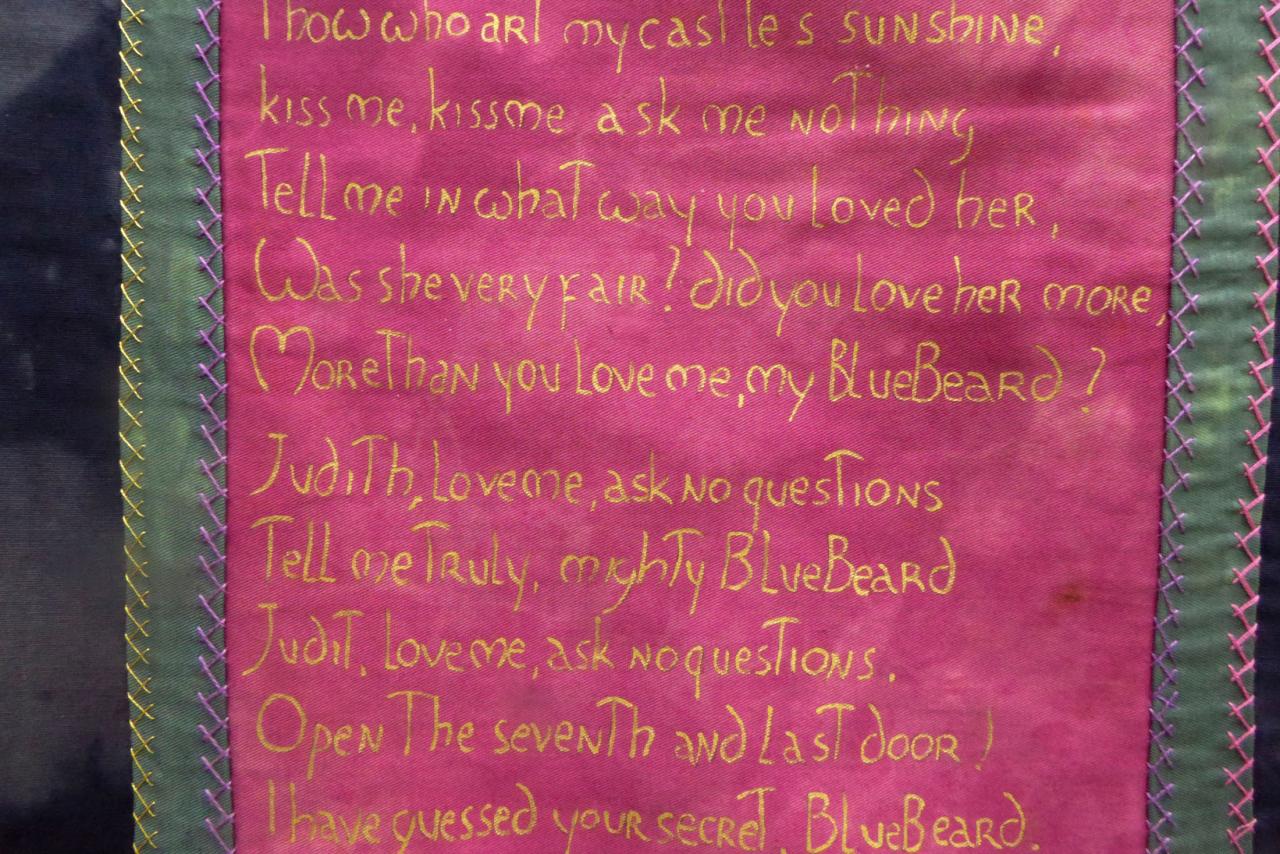 Thow who art my castle s sunshine,
kiss me, kiss me ask me nothing
Tell me in what way you loved her,
Was she very fair? did you love her more,
More than you love me, my BlueBeard?
Judith, love me, ask no questions
Tell me truly, mighty BlueBeard
Judit, love me, ask no questions.
Open the seventh and last door!
I have guessed your secret, BlueBeard.